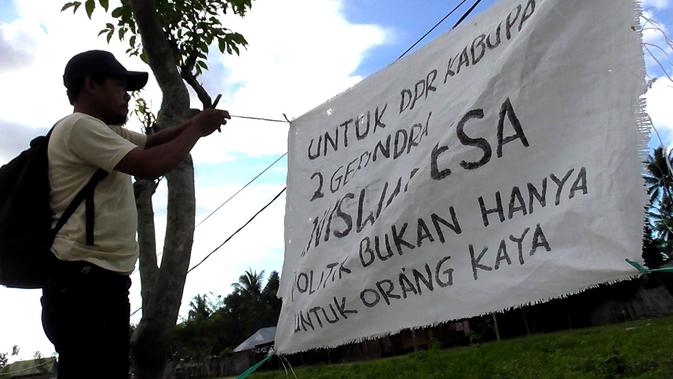 UNTUK DPR KABUPA
2 GERINDRA
ESA
POLITIK BUKAN HANYA
UNTUK ORANG KAYA